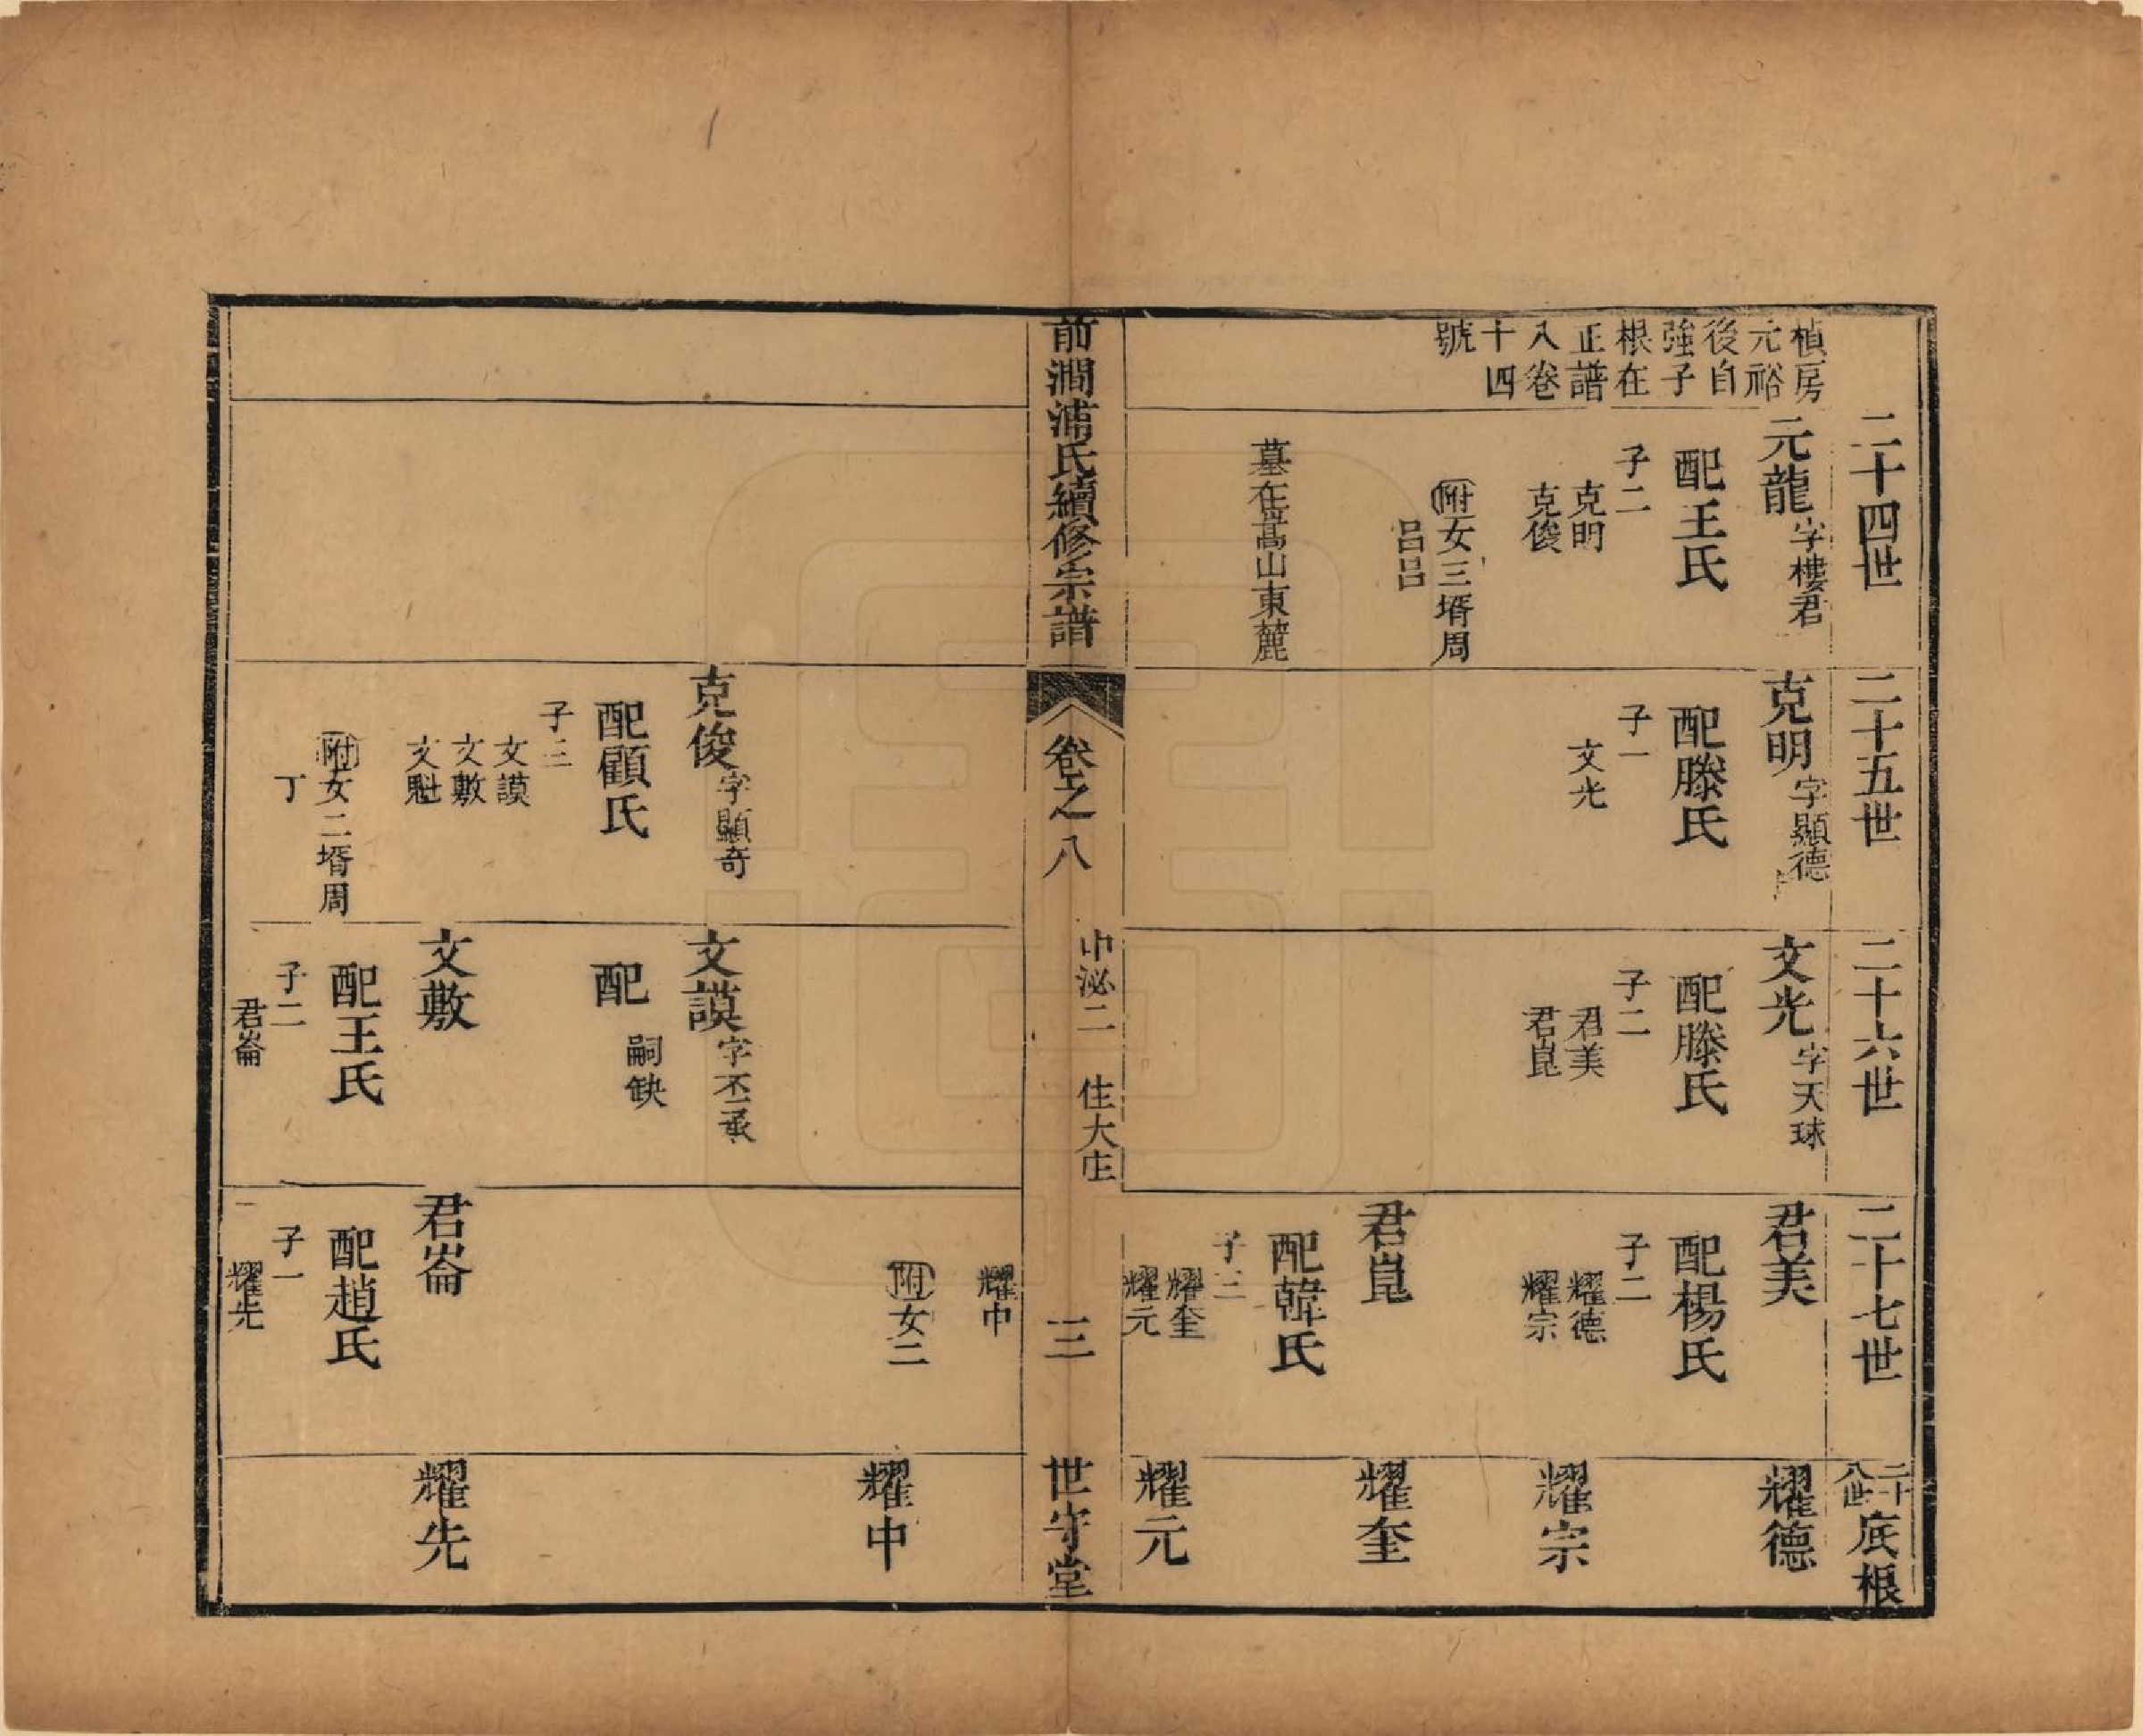 二十四世
二十五世
二十六世
二十七世
二十八世 底根
楨房
元裕
後自
強子
根在
正譜
八卷
十四
號
元龍 字樓君
配王氏
子二
克明
克俊
附女三壻周
呂呂
墓在嵩山東麓
克明 字顯德
配滕氏
子一
文光
文光 字天球
配滕氏
子二
君美
君崑
君美
配楊氏
子二
耀德
耀宗
君崑
配韓氏
子三
耀奎
耀元
耀德
耀宗
耀奎
耀元
前澗浦氏續修宗譜
卷之八
中泌二 住大庄
三
世守堂
克俊 字顯奇
配顧氏
子三
文謨
文敷
文魁
附女二壻周
丁
文謨 字丕承
配
嗣缺
文敷
配王氏
子二
君崙
耀中
附女二
君崙
配趙氏
子一
耀先
耀中
耀先